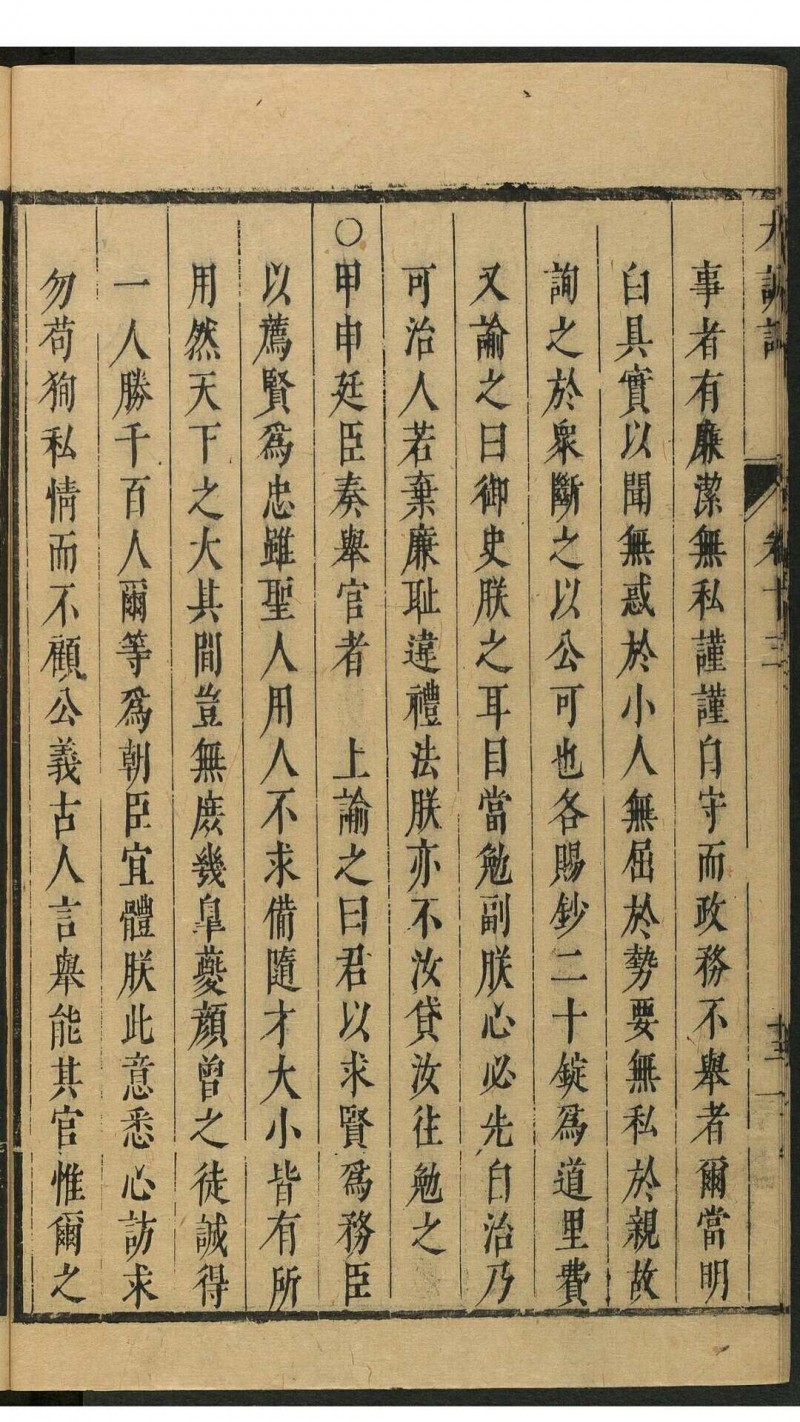 卷十三
事者有廉潔無私謹謹自守而政務不舉者爾當明
白具實以聞無惑於小人無屈於勢要無私於親故
詢之於衆斷之以公可也各賜鈔二十錠爲道里費
又諭之曰御史朕之耳目當勉副朕心必先自治乃
可治人若棄廉耻違禮法朕亦不汝貸汝往勉之
〇甲申廷臣奏舉官者　上諭之曰君以求賢爲務臣
以薦賢爲忠雖聖人用人不求備隨才大小皆有所
用然天下之大其間豈無庶幾臯夔顔曾之徒誠得
一人勝千百人爾等爲朝臣宜體朕此意悉心訪求
勿苟狥私情而不顧公義古人言舉能其官惟爾之